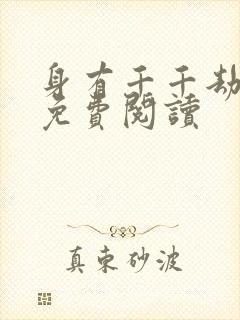 身有千千劫
免費閱讀
真束砂波